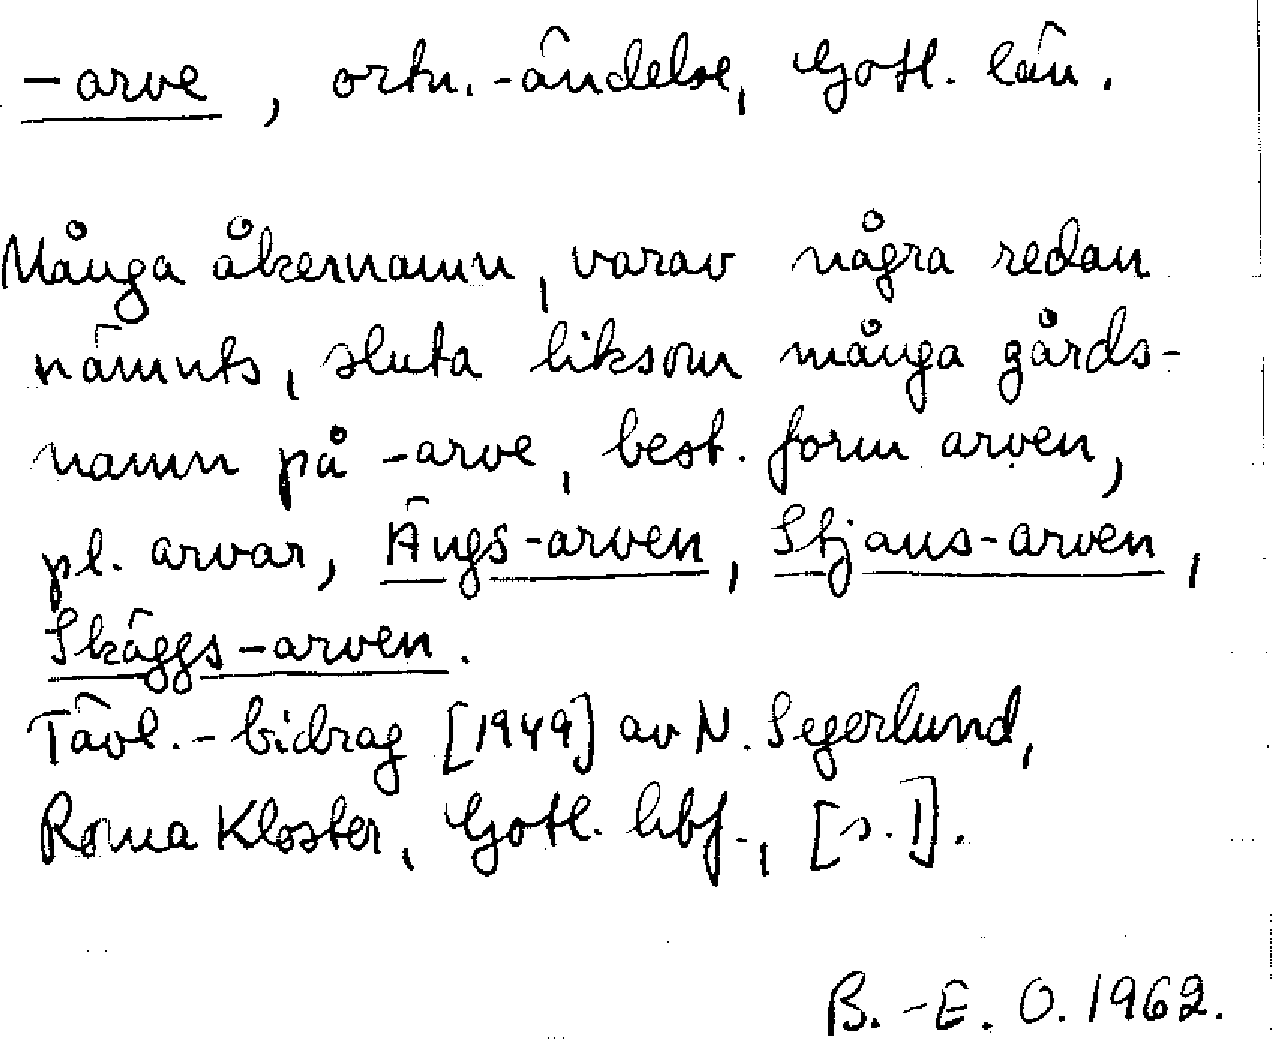 -arve, ortn.-ändelse, Gotl. län.
Många åkernamn, varav några redan
nämnts, sluta liksom många gårds-
namn på -arve, best. form arven,
pl. arvar, Ängs-arven, Stjaus-arven,
Skäggs-arven.
Tävl.-bidrag [1949] av N. Segerlund,
Roma Kloster, Gotl. hbf., [s. 1].
B.-E. O. 1962.